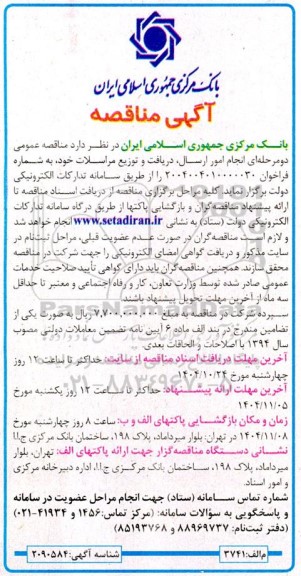 بانک مرکزی جمهوری اسلامی ایران
آگهی مناقصه
بانک مرکزی جمهوری اسلامی ایران در نظر دارد مناقصه عمومی
دو مرحله‌ای انجام امور ارسال، دریافت و توزیع مراسلات خود، به شماره
فراخوان ۲۰۰۴۰۰۴۰۱۰۰۰۰۳۰ را از طریق سامانه تدارکات الکترونیکی
دولت برگزار نماید. کلیه مراحل برگزاری مناقصه از دریافت اسناد مناقصه تا
ارائه پیشنهاد مناقصه‌گران و بازگشایی پاکتها از طریق درگاه سامانه تدارکات
الکترونیکی دولت (ستاد) به نشانی www.setadiran.ir انجام خواهد شد
و لازم است مناقصه‌گران در صورت عدم عضویت قبلی، مراحل ثبت‌نام در
سایت مذکور و دریافت گواهی امضای الکترونیکی را جهت شرکت در مناقصه
محقق سازند. همچنین مناقصه‌گران باید دارای گواهی تأیید صلاحیت خدمات
عمومی صادر شده توسط وزارت تعاون، کار و رفاه اجتماعی و معتبر تا حداقل
سه ماه از آخرین مهلت تحویل پیشنهاد باشند.
سپرده شرکت در مناقصه به مبلغ ۷,۷۰۰,۰۰۰,۰۰۰ ریال به صورت یکی از
تضامین مندرج در بند الف ماده ۶ آیین نامه تضمین معاملات دولتی مصوب
سال ۱۳۹۴ با اصلاحات و الحاقات بعدی.
آخرین مهلت دریافت اسناد مناقصه از سایت: حداکثر تا ساعت ۱۲ روز
چهارشنبه مورخ ۱۴۰۴/۱۰/۲۴
آخرین مهلت ارائه پیشنهاد: حداکثر تا ساعت ۱۲ روز یکشنبه مورخ
۱۴۰۴/۱۱/۰۵
زمان و مکان بازگشایی پاکتهای الف و ب: ساعت ۸ روز چهارشنبه مورخ
۱۴۰۴/۱۱/۰۸ در تهران: بلوار میرداماد، پلاک ۱۹۸، ساختمان بانک مرکزی ج.ا.ا
نشانی دستگاه مناقصه‌گزار جهت ارائه پاکتهای الف: تهران، بلوار
میرداماد، پلاک ۱۹۸، ساختمان بانک مرکزی ج.ا.ا، اداره دبیرخانه مرکزی
و امور اسناد.
شماره تماس سامانه (ستاد) جهت انجام مراحل عضویت در سامانه
و پاسخگویی به سؤالات سامانه: (مرکز تماس: ۱۴۵۶ و ۴۱۹۳۴-۰۲۱)
(دفتر ثبت‌نام: ۸۸۹۶۹۷۳۷ و ۸۵۱۹۳۷۶۸)
م‌الف: ۳۷۴۱ شناسه آگهی: ۲۰۹۰۵۸۴